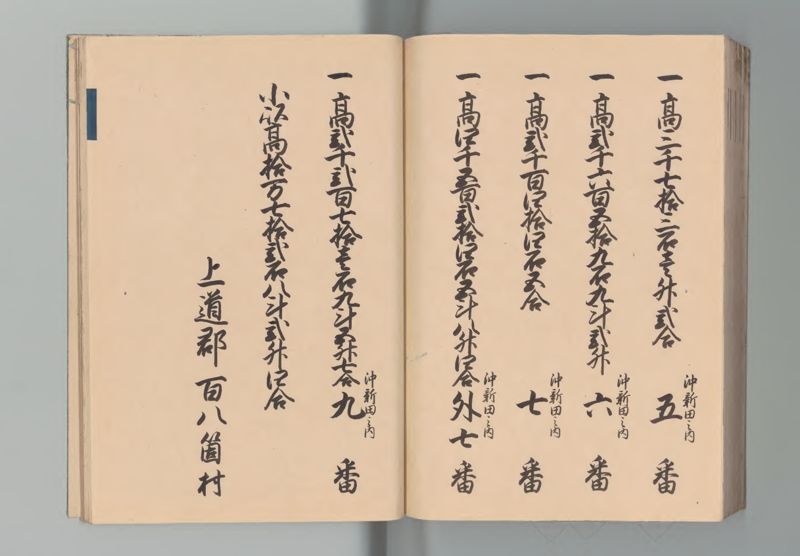 一 高三千七拾三石壱升弐合 沖新田之内 五番
一 高弐千六百五拾九石九斗弐升 沖新田之内 六番
一 高弐千百四拾四石五合 沖新田之内 七番
一 高四千五百弐拾四石五斗八升四合 沖新田之内 外七番
一 高弐千弐百七拾壱石九斗五升七合 沖新田之内 九番
小以高拾万七拾弐石八斗弐升四合
上道郡 百八箇村